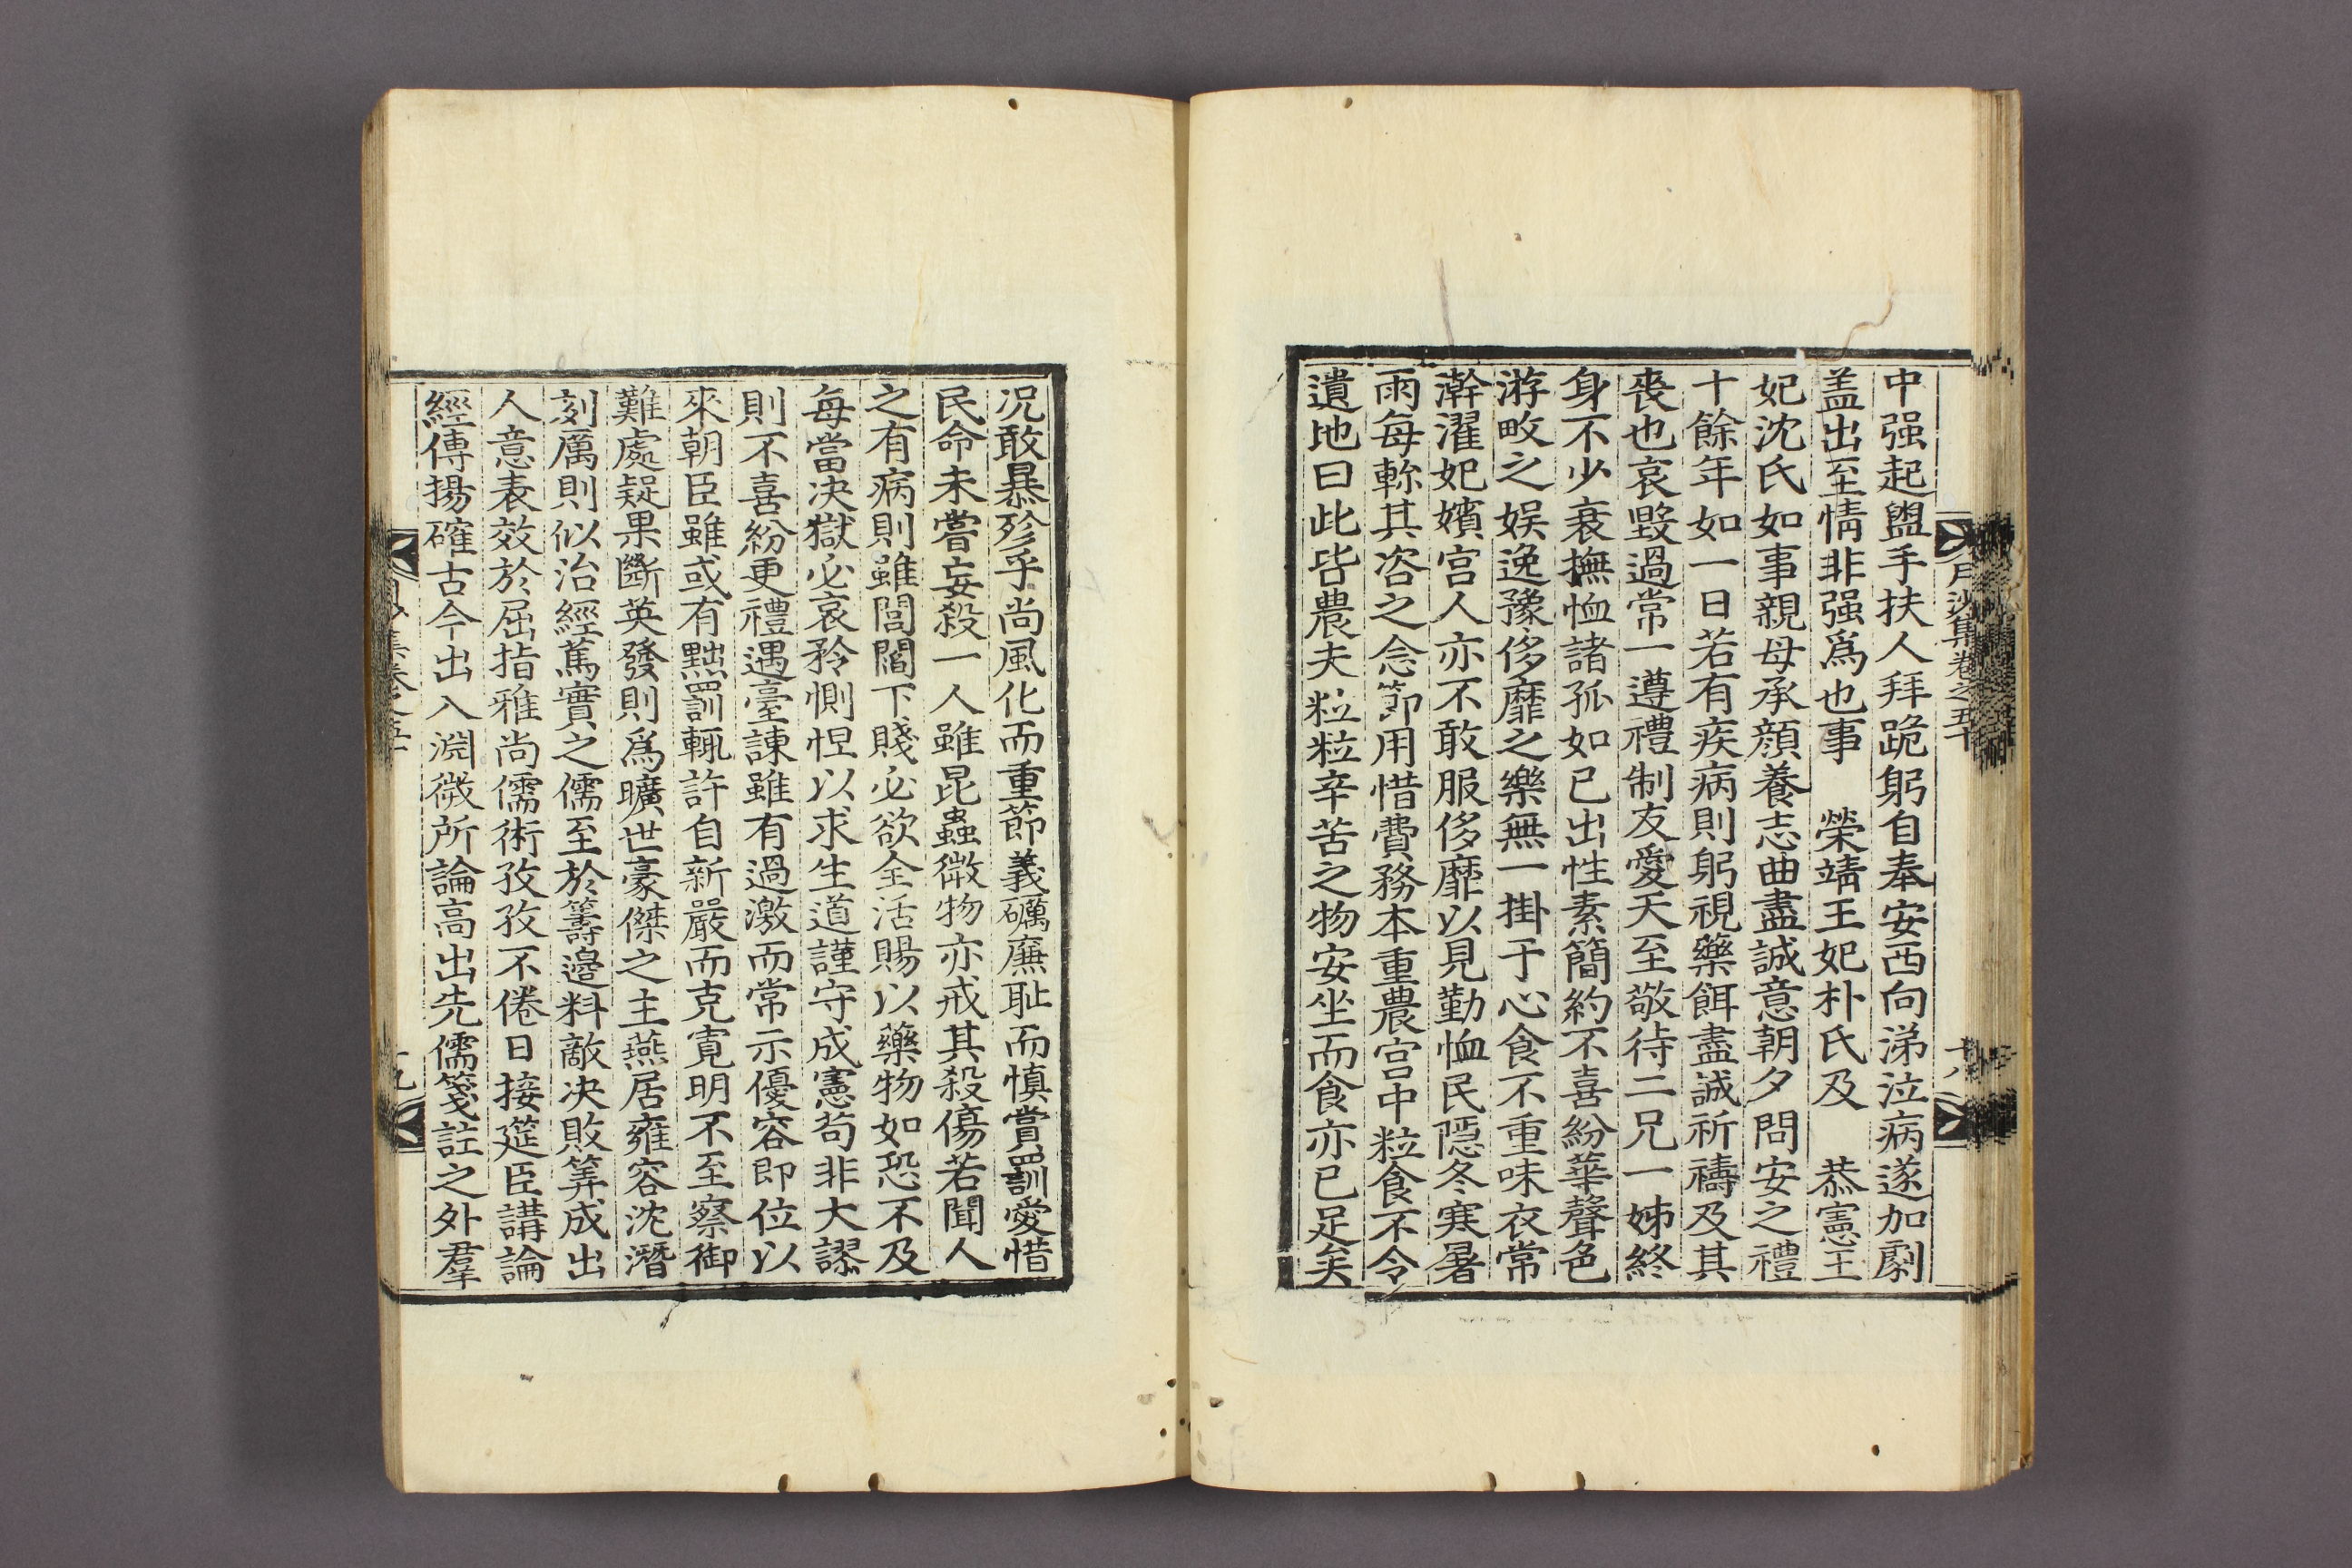 月沙集卷之五十
十八
中强起盥手扶人拜跪躬自奉安西向涕泣病遂加劇
盖出至情非强爲也事 榮靖王妃朴氏及 恭憲王
妃沈氏如事親母承顔養志曲盡誠意朝夕問安之禮
十餘年如一日若有疾病則躬視藥餌盡誠祈禱及其
喪也哀毁過常一遵禮制友愛天至敬待二兄一姊終
身不少衰撫恤諸孤如已出性素簡約不喜紛華聲色
游畋之娱逸豫侈靡之樂無一掛于心食不重味衣常
澣濯妃嬪宫人亦不敢服侈靡以見勤恤民隱冬寒暑
雨每軫其咨之念節用惜費務本重農宫中粒食不令
遺地曰此皆農夫粒粒辛苦之物安坐而食亦已足矣
况敢暴殄乎尚風化而重節義礪廉耻而慎賞罰愛惜
民命未嘗妄殺一人雖昆蟲微物亦戒其殺傷若聞人
之有病則雖閭閻下賤必欲全活賜以藥物如恐不及
每當决獄必哀矜惻怛以求生道謹守成憲苟非大謬
則不喜紛更禮遇臺諫雖有過激而常示優容即位以
來朝臣雖或有黜罰輒許自新嚴而克寛明不至察御
難處疑果斷英發則爲曠世豪傑之主燕居雍容沈潛
刻厲則似治經篤實之儒至於籌邊料敵决敗筭成出
人意表效於屈指雅尚儒術孜孜不倦日接筵臣講論
經傳揚確古今出入淵微所論高出先儒箋註之外羣
月沙集卷之五十
十九